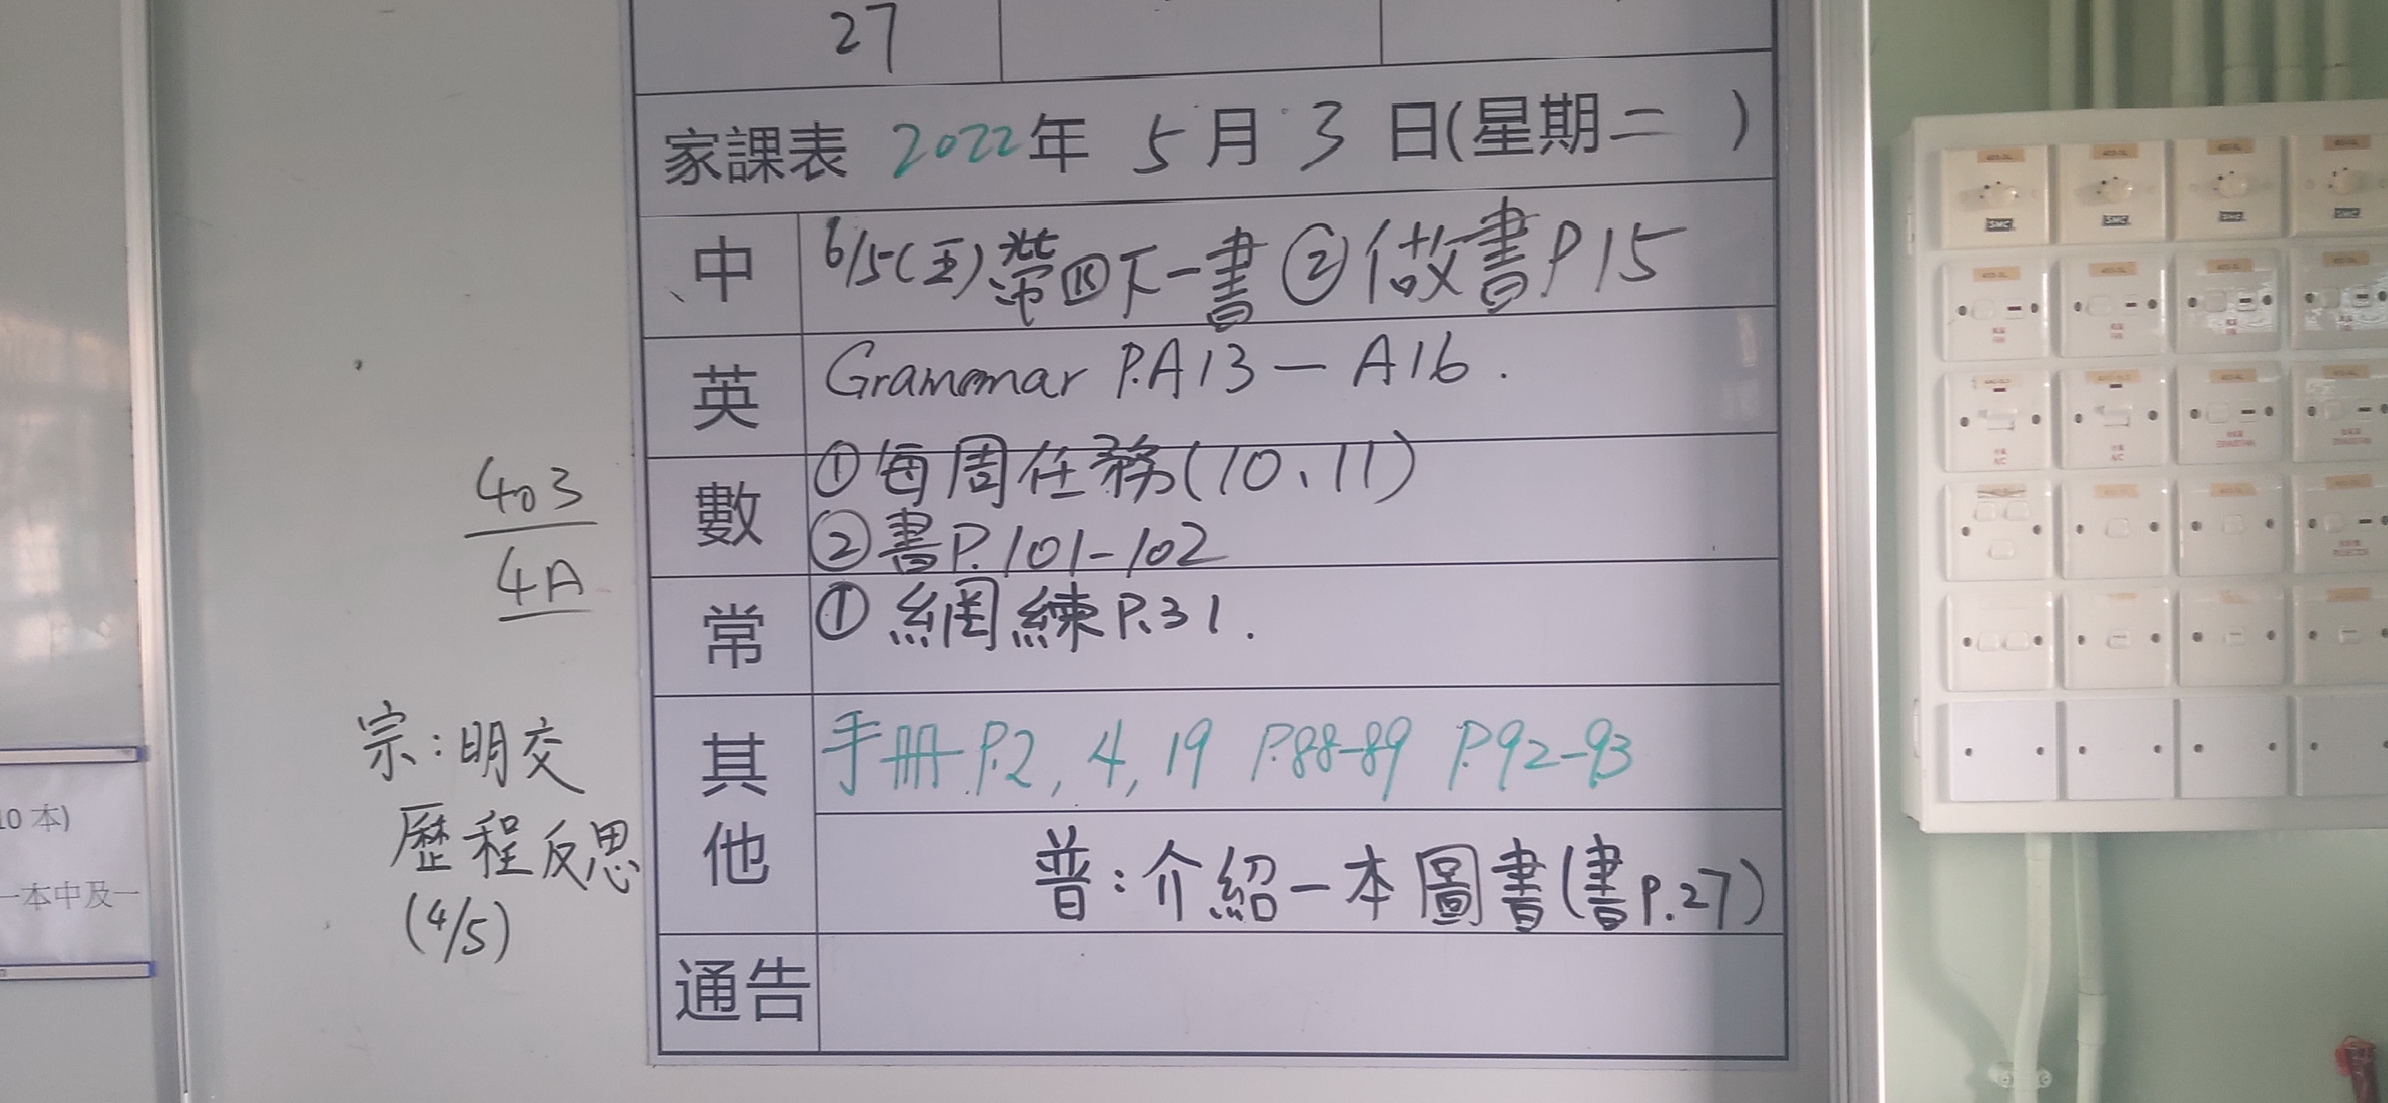 27
家課表 2022年 5月 3日(星期二 )
中 6/5(五)帶四下一書 ②做書P.15
英 Grammar P.A13 — A16.
數 ①每周任務(10、11)
②書P.101-102
常 ①網練P.31.
其他 手冊P.2, 4, 19 P.88-89 P.92-93
普:介紹一本圖書(書P.27)
通告
403
4A
宗:明交
歷程反思
(4/5)
10 本)
一本中及一